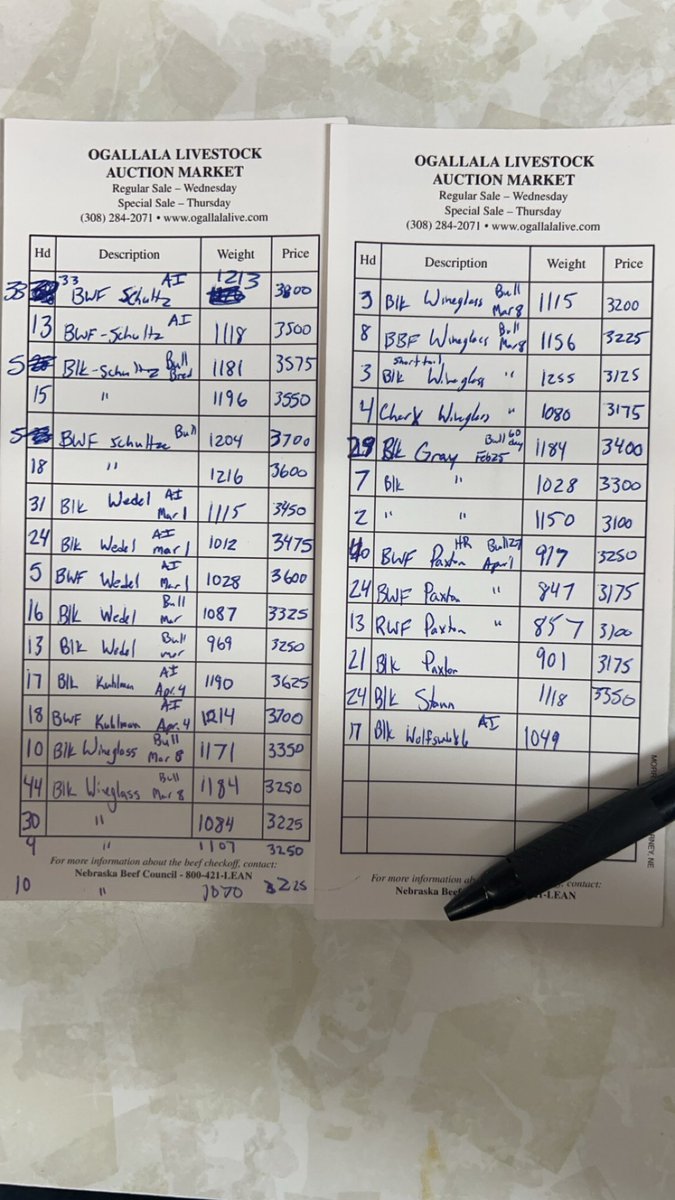 OGALLALA LIVESTOCK
AUCTION MARKET
Regular Sale – Wednesday
Special Sale – Thursday
(308) 284-2071 • www.ogallalalive.com
Hd Description Weight Price
33 33 BWF Schultz AI 1213 3800
13 BWF-Schultz AI 1118 3500
5 Blk-Schultz Bull Bred 1181 3575
15 " 1196 3550
5 BWF Schultze Bull 1204 3700
18 " 1216 3600
31 Blk Wedel AI Mar 1 1115 3450
24 Blk Wedel AI Mar 1 1012 3475
5 BWF Wedel AI Mar 1 1028 3600
16 Blk Wedel Bull Mar 1087 3325
13 Blk Wedel Bull Mar 969 3250
17 Blk Kuhlman AI Apr. 4 1190 3625
18 BWF Kuhlman AI Apr. 4 1214 3700
10 Blk Wineglass Bull Mar 8 1171 3350
44 Blk Wineglass Bull Mar 8 1184 3250
30 " 1084 3225
9 " 1107 3250
For more information about the beef checkoff, contact:
Nebraska Beef Council - 800-421-LEAN
10 " 1070 3225
OGALLALA LIVESTOCK
AUCTION MARKET
Regular Sale – Wednesday
Special Sale – Thursday
(308) 284-2071 • www.ogallalalive.com
Hd Description Weight Price
3 Blk Wineglass Bull Mar 8 1115 3200
8 BBF Wineglass Bull Mar 8 1156 3225
3 short tail Blk Wineglass " 1255 3125
4 CharX Wineglass " 1080 3175
29 Blk Gray Bull 60 day Feb 25 1184 3400
7 Blk " 1028 3300
2 " " 1150 3100
40 BWF Paxton HR Bull 27 April 917 3250
24 BWF Paxton " 847 3175
13 RWF Paxton " 857 3100
21 Blk Paxton 901 3175
24 Blk 1118 3350
17 Blk AI 1049
For more information contact:
Nebraska -LEAN